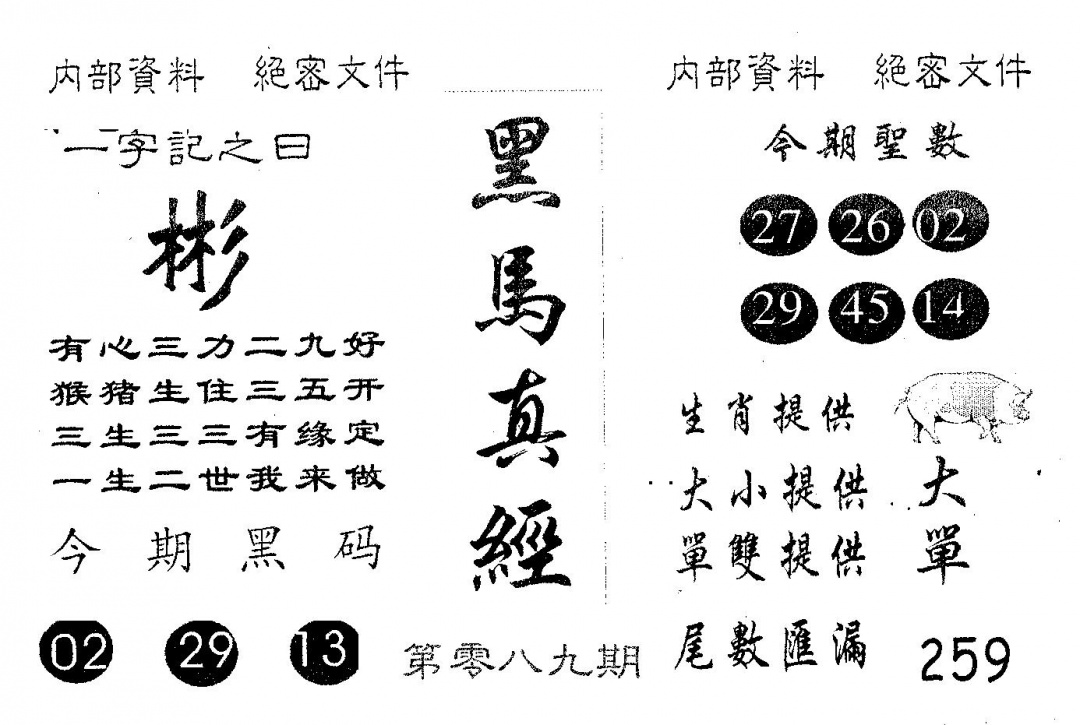 内部資料 絕密文件
一字記之曰
彬
有心三力二九好
猴猪生住三五开
三生三三有缘定
一生二世我来做
今期黑码
02 29 13
黑馬真經
第零八九期
内部資料 絕密文件
今期聖數
27 26 02
29 45 14
生肖提供
大小提供 大
單雙提供 單
尾數匯漏 259